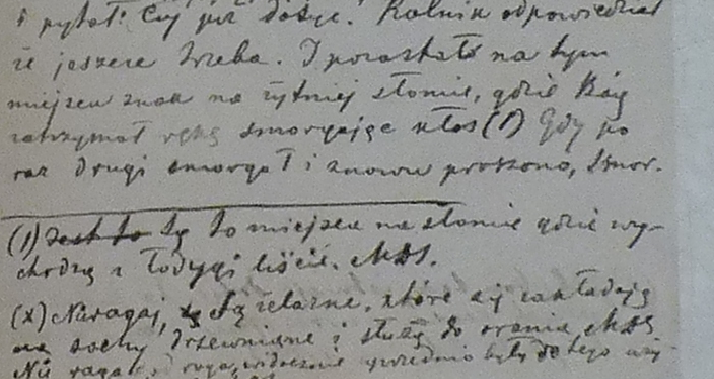 i pytał: Czy już dosyć. Rolnik odpowiedział
że jeszcze trzeba. I pozostał na tym
miejscu znak na żytniej słomie, gdzie Bóg
zatrzymał rękę smorgając kłos (1) Gdy po
raz drugi smorgał i znowu proszono, smor-
(1) Jest to Są to miejsca na słomie gdzie wy-
chodzą z łodygi liście.
(x) Narogaj, są żelazne, które się zakładają
na sochy drzewniane i służą do orania
uprzednio były do tego uży-